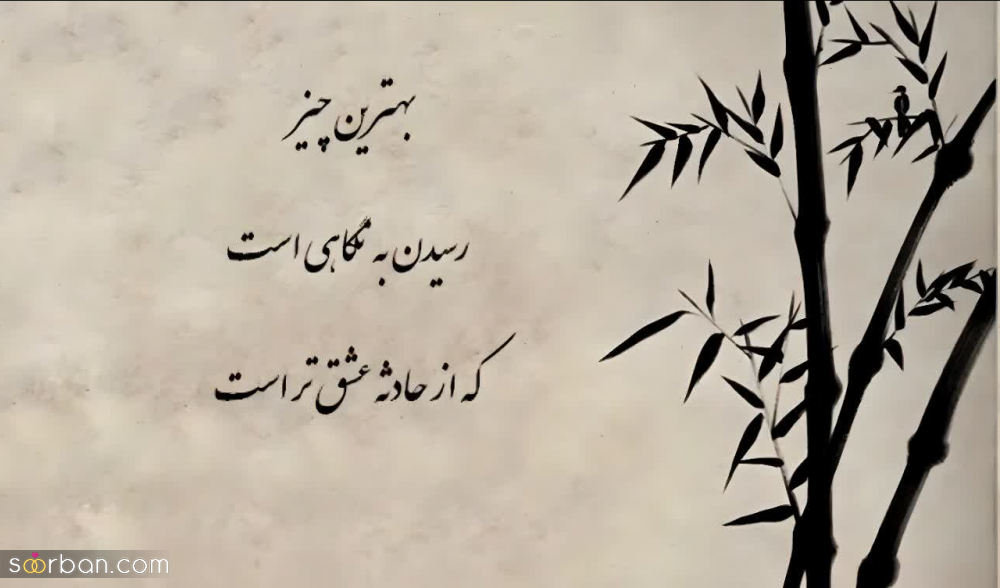 بهترین چیز
رسیدن به نگاهی است
که از حادثه عشق تر است
soorban.com